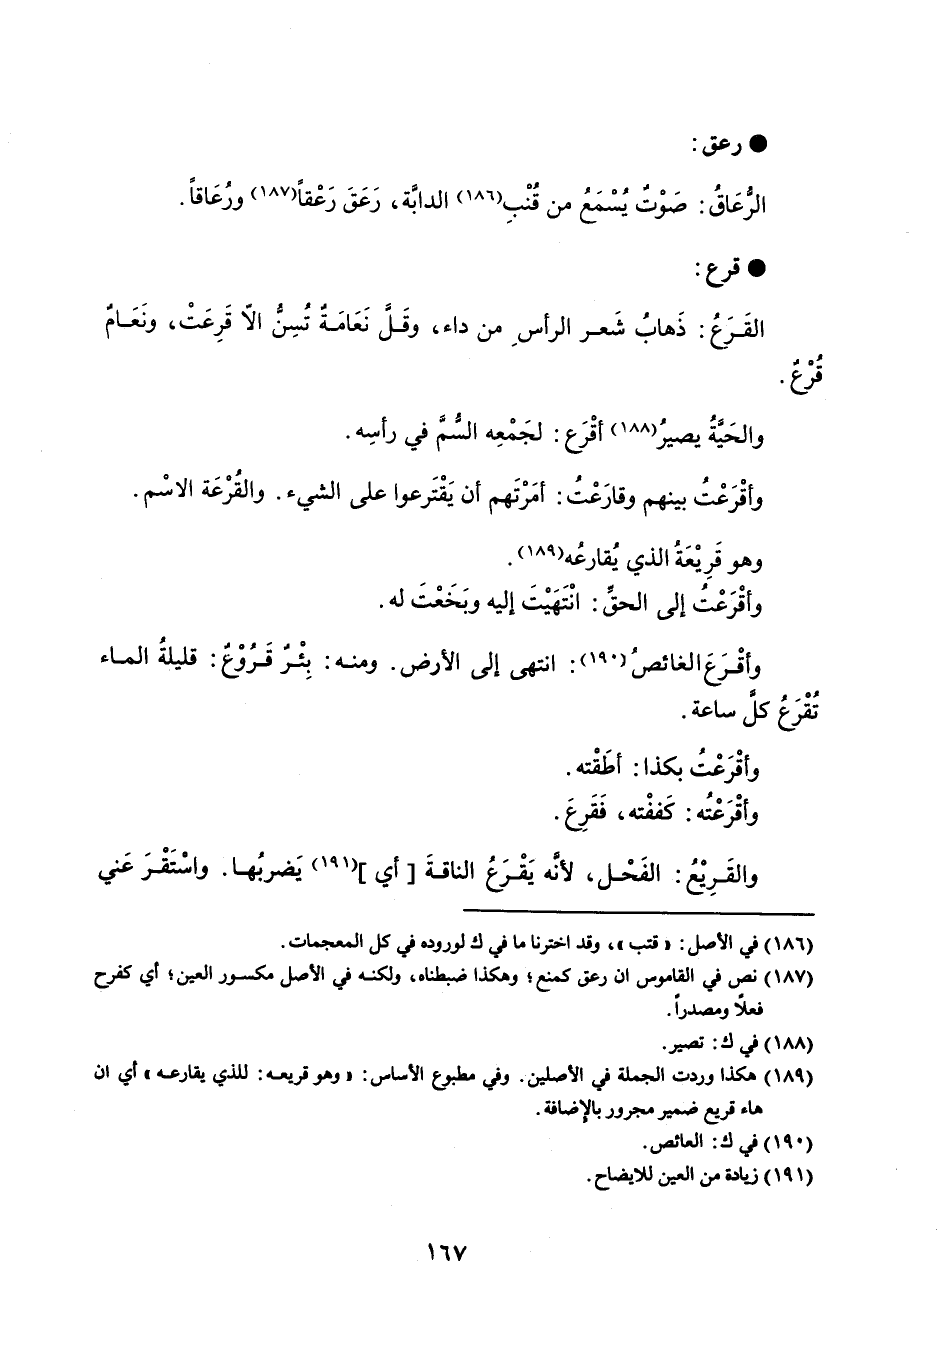 ● رعق :
الرُّعَاقُ : صَوْتٌ يُسْمَعُ من قُنْبِ(١٨٦) الدابَّة ، رَعَقَ رَعْقاً(١٨٧) ورُعَاقاً .
● قرع :
القَرَعُ : ذَهابُ شَعر الرأس من داء ، وقَلَّ نَعَامَةٌ تُسِنُّ الاّ قَرِعَتْ ، ونَعَامٌ
قُرْعٌ .
والحَيَّةُ يصيرُ(١٨٨) أقْرَع : لجَمْعِه السُّمَّ في رأسِه .
وأقْرَعْتُ بينهم وقارَعْتُ : أمَرْتَهم أن يَقْتَرعوا على الشيء . والقُرْعَة الاسْم .
وهو قَرِيْعَةُ الذي يُقارعُه(١٨٩) .
وأقْرَعْتُ إلى الحقِّ : انْتَهَيْتَ إليه وبَخَعْتَ له .
وأقْرَعَ الغائصُ(١٩٠) : انتهى إلى الأرض . ومنه : بِئْرٌ قَرُوْعٌ : قليلةُ الماء
تُقْرَعُ كلَّ ساعة .
وأقْرَعْتُ بكذا : أطَقْته .
وأقْرَعْتُه : كَففْته ، فَقَرِعَ .
والقَرِيْعُ : الفَحْل ، لأنَّه يَقْرَعُ الناقةَ [ أي ](١٩١) يَضربُها . واسْتَقْرَ عَني
(١٨٦) في الأصل : « قتب » ، وقد اخترنا ما في ك لوروده في كل المعجمات .
(١٨٧) نص في القاموس ان رعق كمنع ؛ وهكذا ضبطناه ، ولكنه في الأصل مكسور العين ؛ أي كفرح
فعلًا ومصدراً .
(١٨٨) في ك : تصير .
(١٨٩) هكذا وردت الجملة في الأصلين . وفي مطبوع الأساس : « وهو قريعه : للذي يقارعه » أي ان
هاء قريع ضمير مجرور بالإضافة .
(١٩٠) في ك : العائص .
(١٩١) زيادة من العين للايضاح .
١٦٧